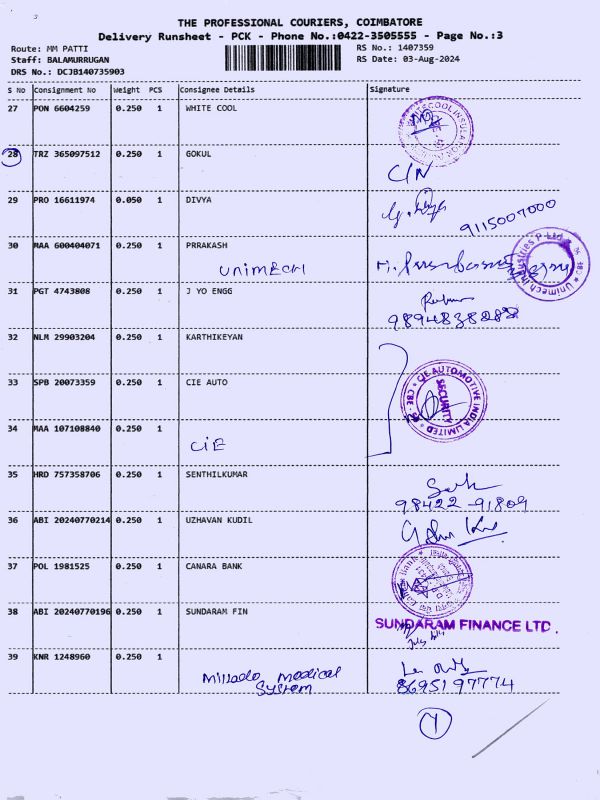 3
THE PROFESSIONAL COURIERS, COIMBATORE
Delivery Runsheet - PCK - Phone No.:0422-3505555 - Page No.:3
Route: MM PATTI
RS No.: 1407359
Staff: BALAMURRUGAN
RS Date: 03-Aug-2024
DRS No.: DCJB140735903
S No Consignment No Weight PCS Consignee Details Signature
27 PON 6604259 0.250 1 WHITE COOL
28 TRZ 365097512 0.250 1 GOKUL
C/N
29 PRO 16611974 0.050 1 DIVYA
9115007000
30 MAA 600404071 0.250 1 PRRAKASH
UNIMECH
Unimech Industries P Ltd CBE
31 PGT 4743808 0.250 1 J YO ENGG
32 NLM 29903204 0.250 1 KARTHIKEYAN
33 SPB 20073359 0.250 1 CIE AUTO
CIE AUTOMOTIVE INDIA LIMITED CBE
SECURITY
34 MAA 107108840 0.250 1
CIE
35 HRD 757358706 0.250 1 SENTHILKUMAR
98422-91809
36 ABI 20240770214 0.250 1 UZHAVAN KUDIL
37 POL 1981525 0.250 1 CANARA BANK
38 ABI 20240770196 0.250 1 SUNDARAM FIN
SUNDARAM FINANCE LTD.
39 KNR 1248960 0.250 1
Millado medical
System
8695197774